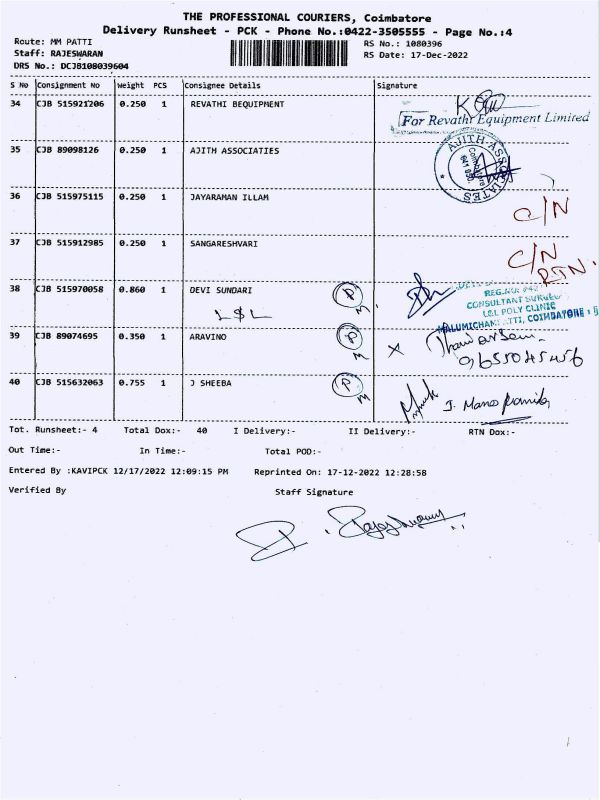 THE PROFESSIONAL COURIERS, Coimbatore
Delivery Runsheet - PCK - Phone No.:0422-3505555 - Page No.:4
Route: MM PATTI
RS No.: 1080396
Staff: RAJESWARAN
RS Date: 17-Dec-2022
DRS No.: DCJB108039604
S No Consignment No Weight PCS Consignee Details Signature
34 CJB 515921206 0.250 1 REVATHI BEQUIPMENT
For Revathi Equipment Limited
35 CJB 89098126 0.250 1 AJITH ASSOCIATIES
AJITH ASSOCIATES
Coimbatore
36 CJB 515975115 0.250 1 JAYARAMAN ILLAM C/N
37 CJB 515912985 0.250 1 SANGARESHVARI C/N
RTN.
38 CJB 515970058 0.860 1 DEVI SUNDARI P
L$L M
CONSULTANT
L&L POLY CLINIC
COIMBATORE
39 CJB 89074695 0.350 1 ARAVINO P X
M 9655045456
40 CJB 515632063 0.755 1 J SHEEBA P
M
Tot. Runsheet:- 4 Total Dox:- 40 I Delivery:- II Delivery:- RTN Dox:-
Out Time:- In Time:- Total POD:-
Entered By :KAVIPCK 12/17/2022 12:09:15 PM Reprinted On: 17-12-2022 12:28:58
Verified By Staff Signature